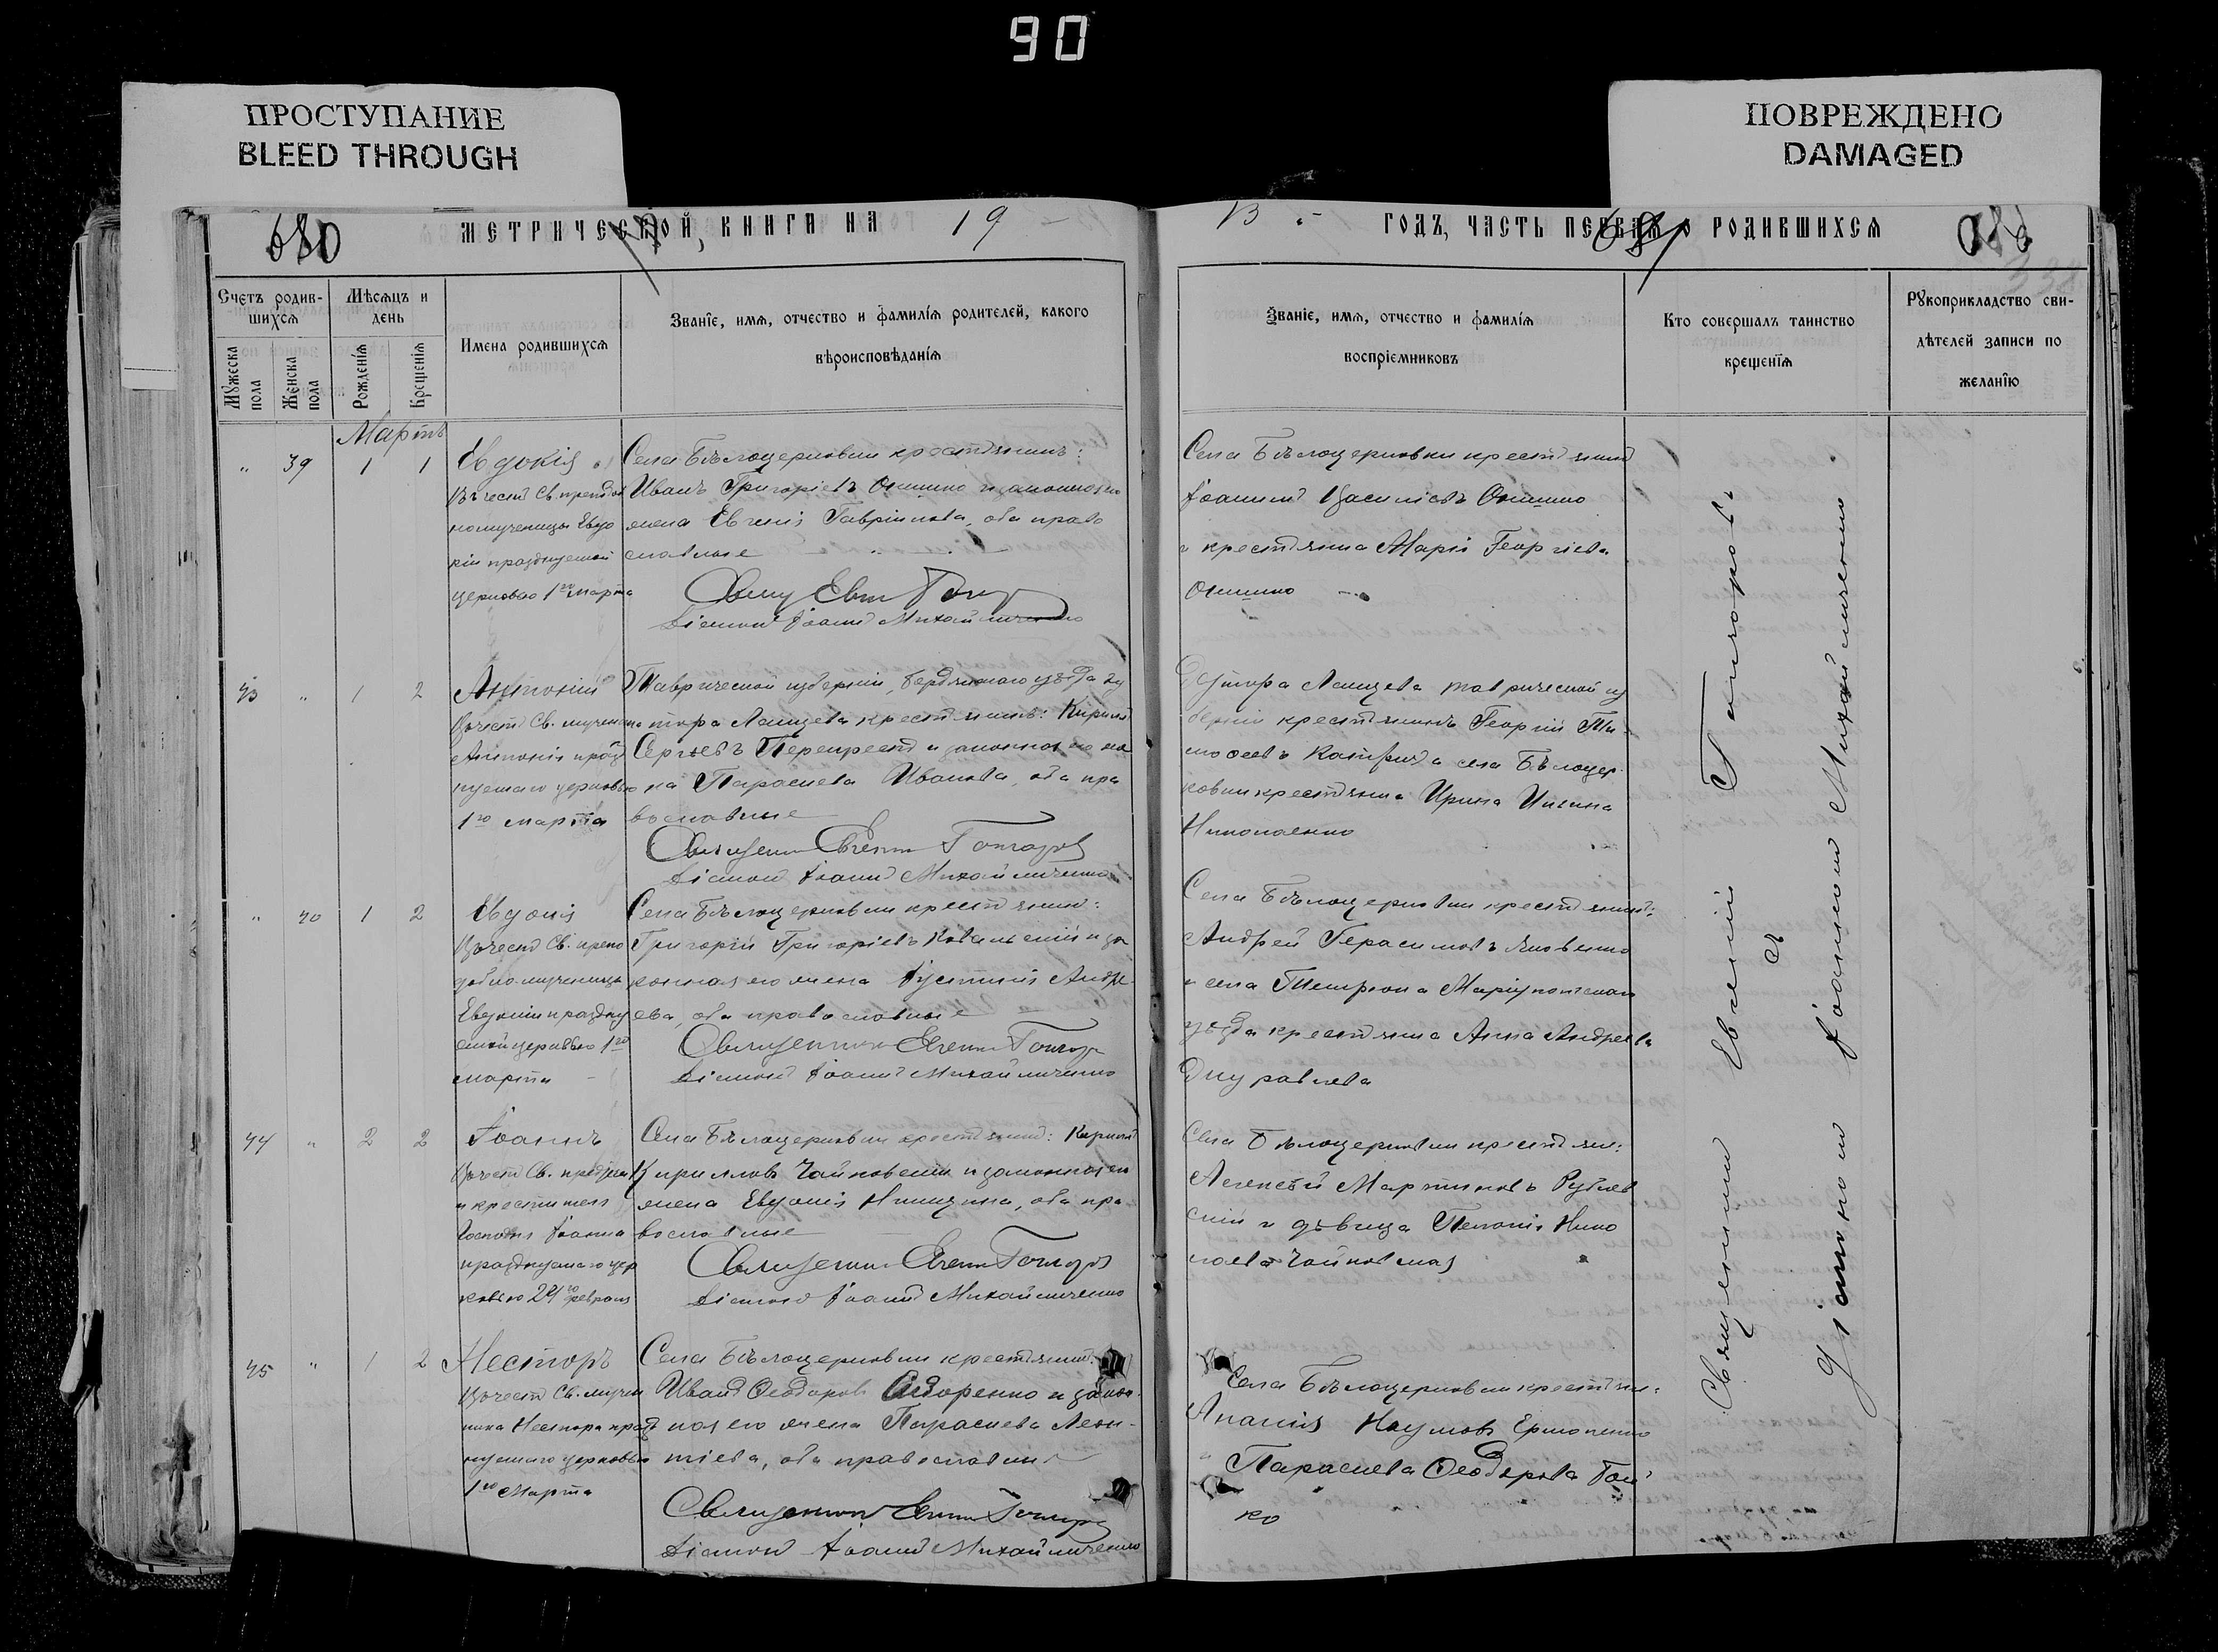 90
ПРОСТУПАНИЕ
BLEED THROUGH
ПОВРЕЖДЕНО
DAMAGED
680
МЕТРИЧЕСКОЙ КНИГИ НА 19
13 ГОДЪ, ЧАСТЬ ПЕРВАЯ О РОДИВШИХСЯ
Счетъ родив-
шихся
Мужеска пола
Женска пола
Мѣсяцъ и
день
Рожденія
Крещенія
Имена родившихся
Званіе, имя, отчество и фамилія родителей, какого
вѣроисповѣданія
Званіе, имя, отчество и фамилія
воспріемниковъ
Кто совершалъ таинство
крещенія
Рукоприкладство сви-
дѣтелей записи по
желанію
Мартъ
" 39 1 1
Евдокія
Въ честь Св. препод
номученицы Евдо
кіи празднуемой
церковью 1го марта
Села Бѣлоцерковки крестьянинъ:
Иванъ Григоріевъ Онишко и законная его
жена Евгенія Гавріилова, оба право
славные
Діаконъ Іоаннъ Михайличенко
Села Бѣлоцерковки крестьянинъ
Іоаннъ Василіевъ Онишко
и крестьянка Марія Георгіева
Онишко
43 " 1 2
Антоній
Въ честь Св. мученика
Антонія празд
нуемаго церковью
1го марта
Таврической губерніи, Бердянскаго уѣзда ху
тора Ланцева крестьянинъ: Кириллъ
Сергѣевъ Перекрестъ и законная его же
на Параскева Иванова, оба пра
вославные
Священникъ Евгеній Гончаровъ
Діаконъ Іоаннъ Михайличенко
Хутора Ланцева таврической гу
берніи крестьянинъ Георгій Ти
моѳеевъ и села Бѣлоцер
ковки крестьянка Ирина
Николаенко
" 40 1 2
Евдокія
Въ честь Св. препо
добномученицы
Евдокіи праздну
емой церковью 1го
марта
Села Бѣлоцерковки крестьянинъ:
Григорій Григоріевъ Ковальскій и за
конная его жена Іустинія Андре
ева, оба православные
Священникъ Евгеній Гончаровъ
Діаконъ Іоаннъ Михайличенко
Села Бѣлоцерковки крестьянинъ:
Андрей Герасимовъ Яковенко
и села Темрюка Маріупольскаго
уѣзда крестьянка Анна Андреева
44 " 2 2
Іоаннъ
Въ честь Св. предтечи
и крестителя
Господня Іоанна
празднуемаго цер
ковью 24го февраля
Села Бѣлоцерковки крестьянинъ: Кириллъ
Кирилловъ Чайковскій и законная его
жена Евдокія Никитина, оба пра
вославные
Священникъ Евгеній Гончаровъ
Діаконъ Іоаннъ Михайличенко
Села Бѣлоцерковки крестьян:
Алексѣй Мартиновъ Рублев
скій и дѣвица Пелагія Нико
лаева Чайковская
45 " 1 2
Несторъ
Въ честь Св. мучен
ника Нестора празд
нуемаго церковью
1го Марта
Села Бѣлоцерковки крестьянинъ:
Иванъ Ѳеодоровъ Сидоренко и закон
ная его жена Параскева Леон-
тіева, оба православные
Священникъ Евгеній Гончаровъ
Діаконъ Іоаннъ Михайличенко
Села Бѣлоцерковки крестьян:
Ананія Наумовъ Ермоленко
Параскева Ѳеодорова
ко
Священникъ Евгеній Гончаровъ
съ
діакономъ Іоанномъ Михайличенко